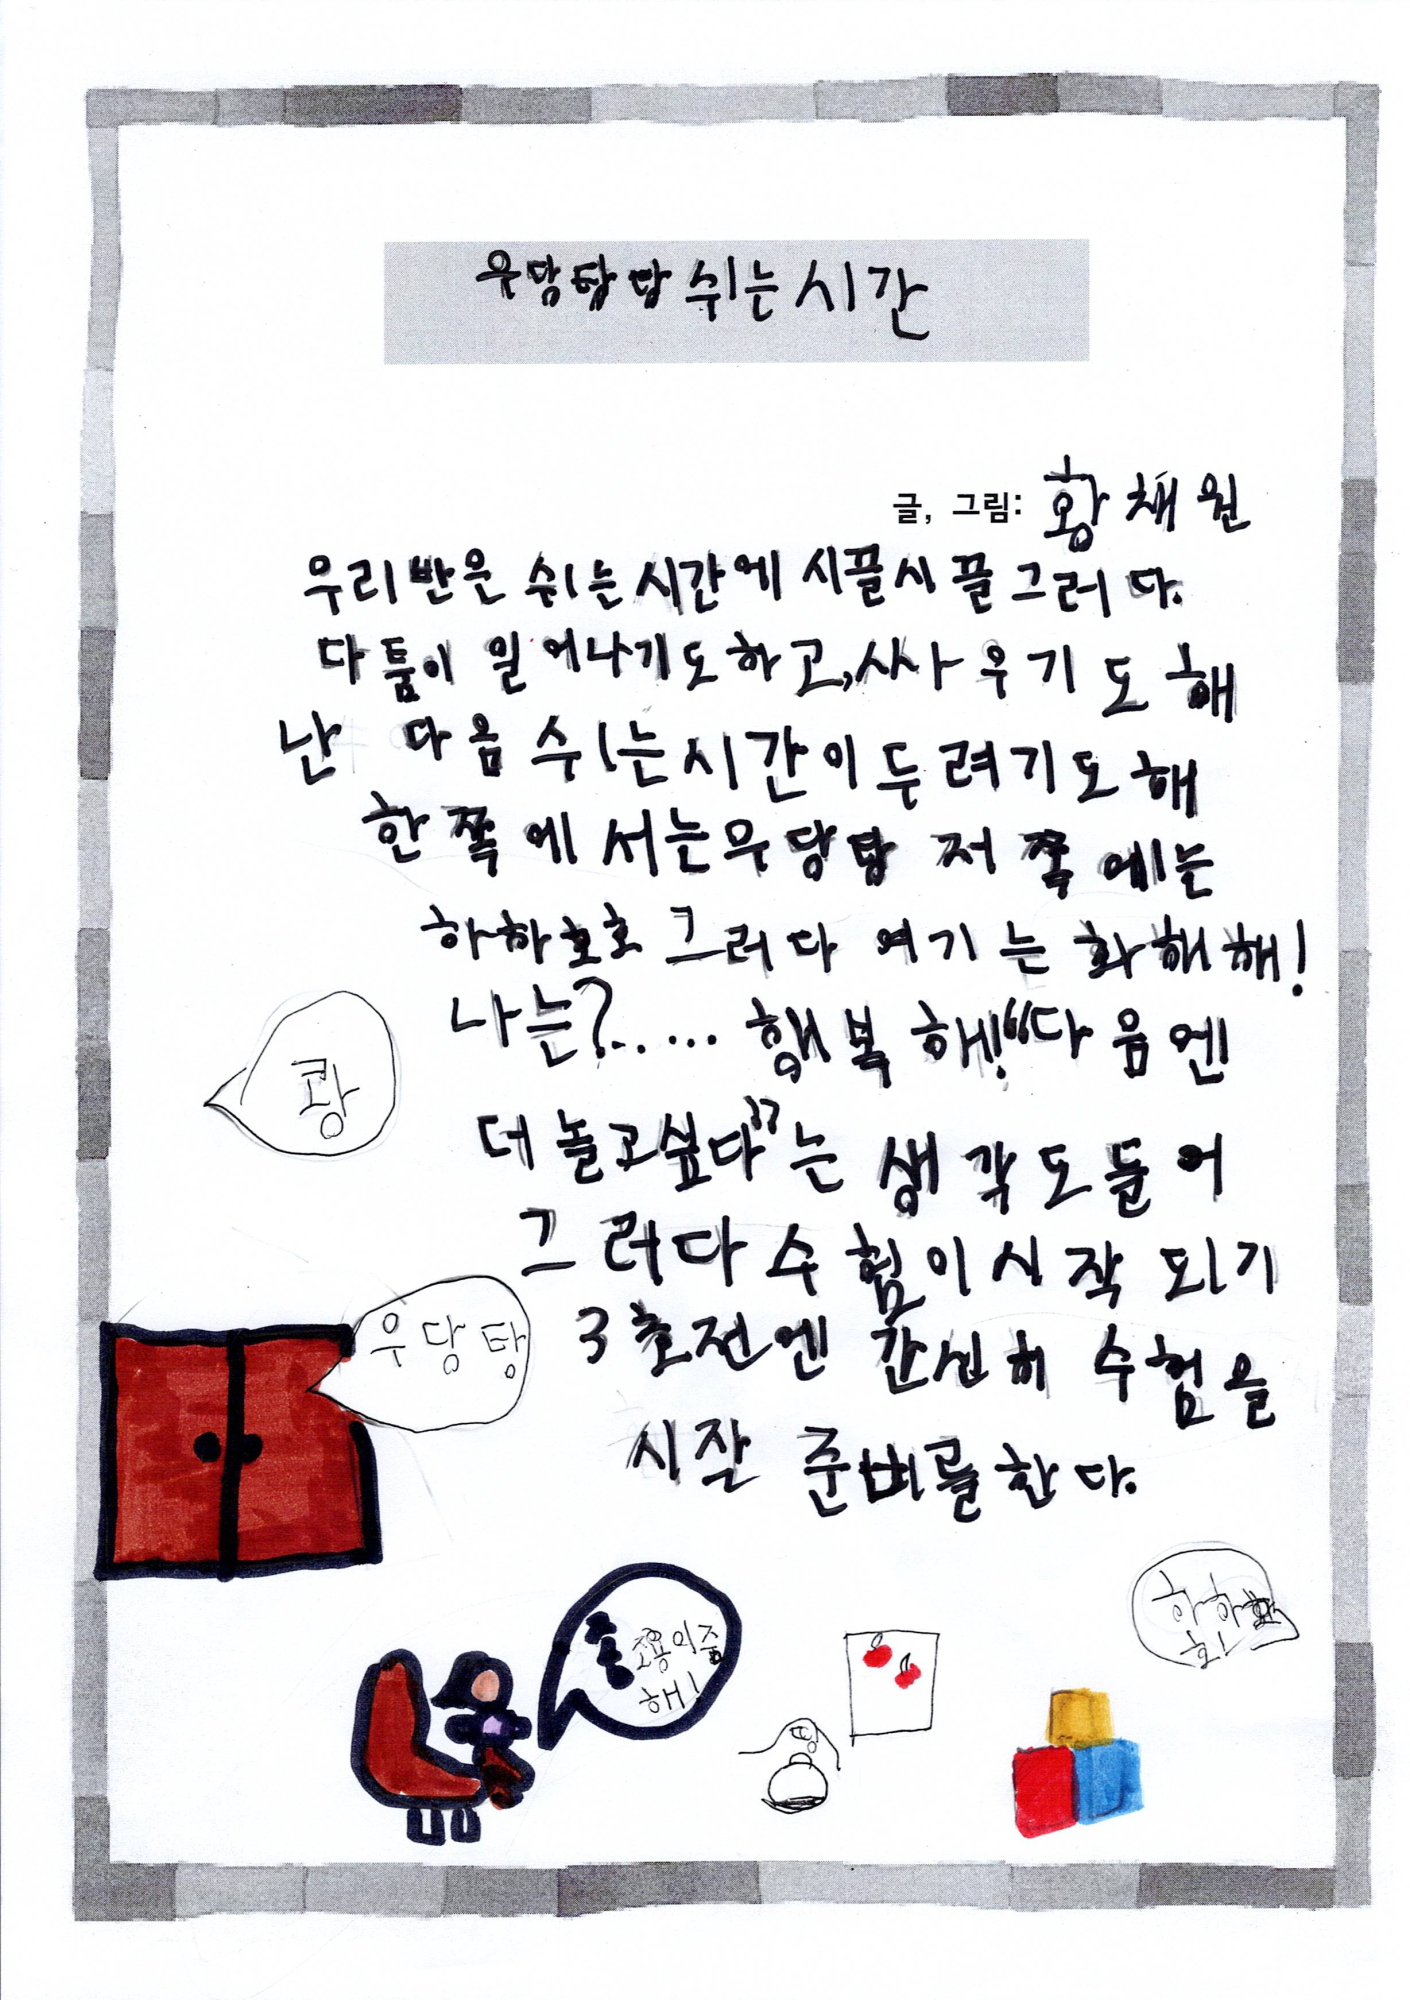 우당탕탕 쉬는시간
글, 그림: 황채원
우리반은 쉬는시간에 시끌시끌 그러다.
다툼이 일어나기도하고, 싸우기도 해
난 다음 쉬는시간이 두려기도해
한쪽에서는 우당탕 저쪽에는
하하호호 그러다 여기는 화해해!
나는?..... 행복해! "다음엔
더 놀고싶다"는 생각도 들어
그러다 수험이 시작 되기
3초전엔 간신히 수험을
시작 준비를 한다.
쾅
우당탕
조용이좀
해!
하하호
호!